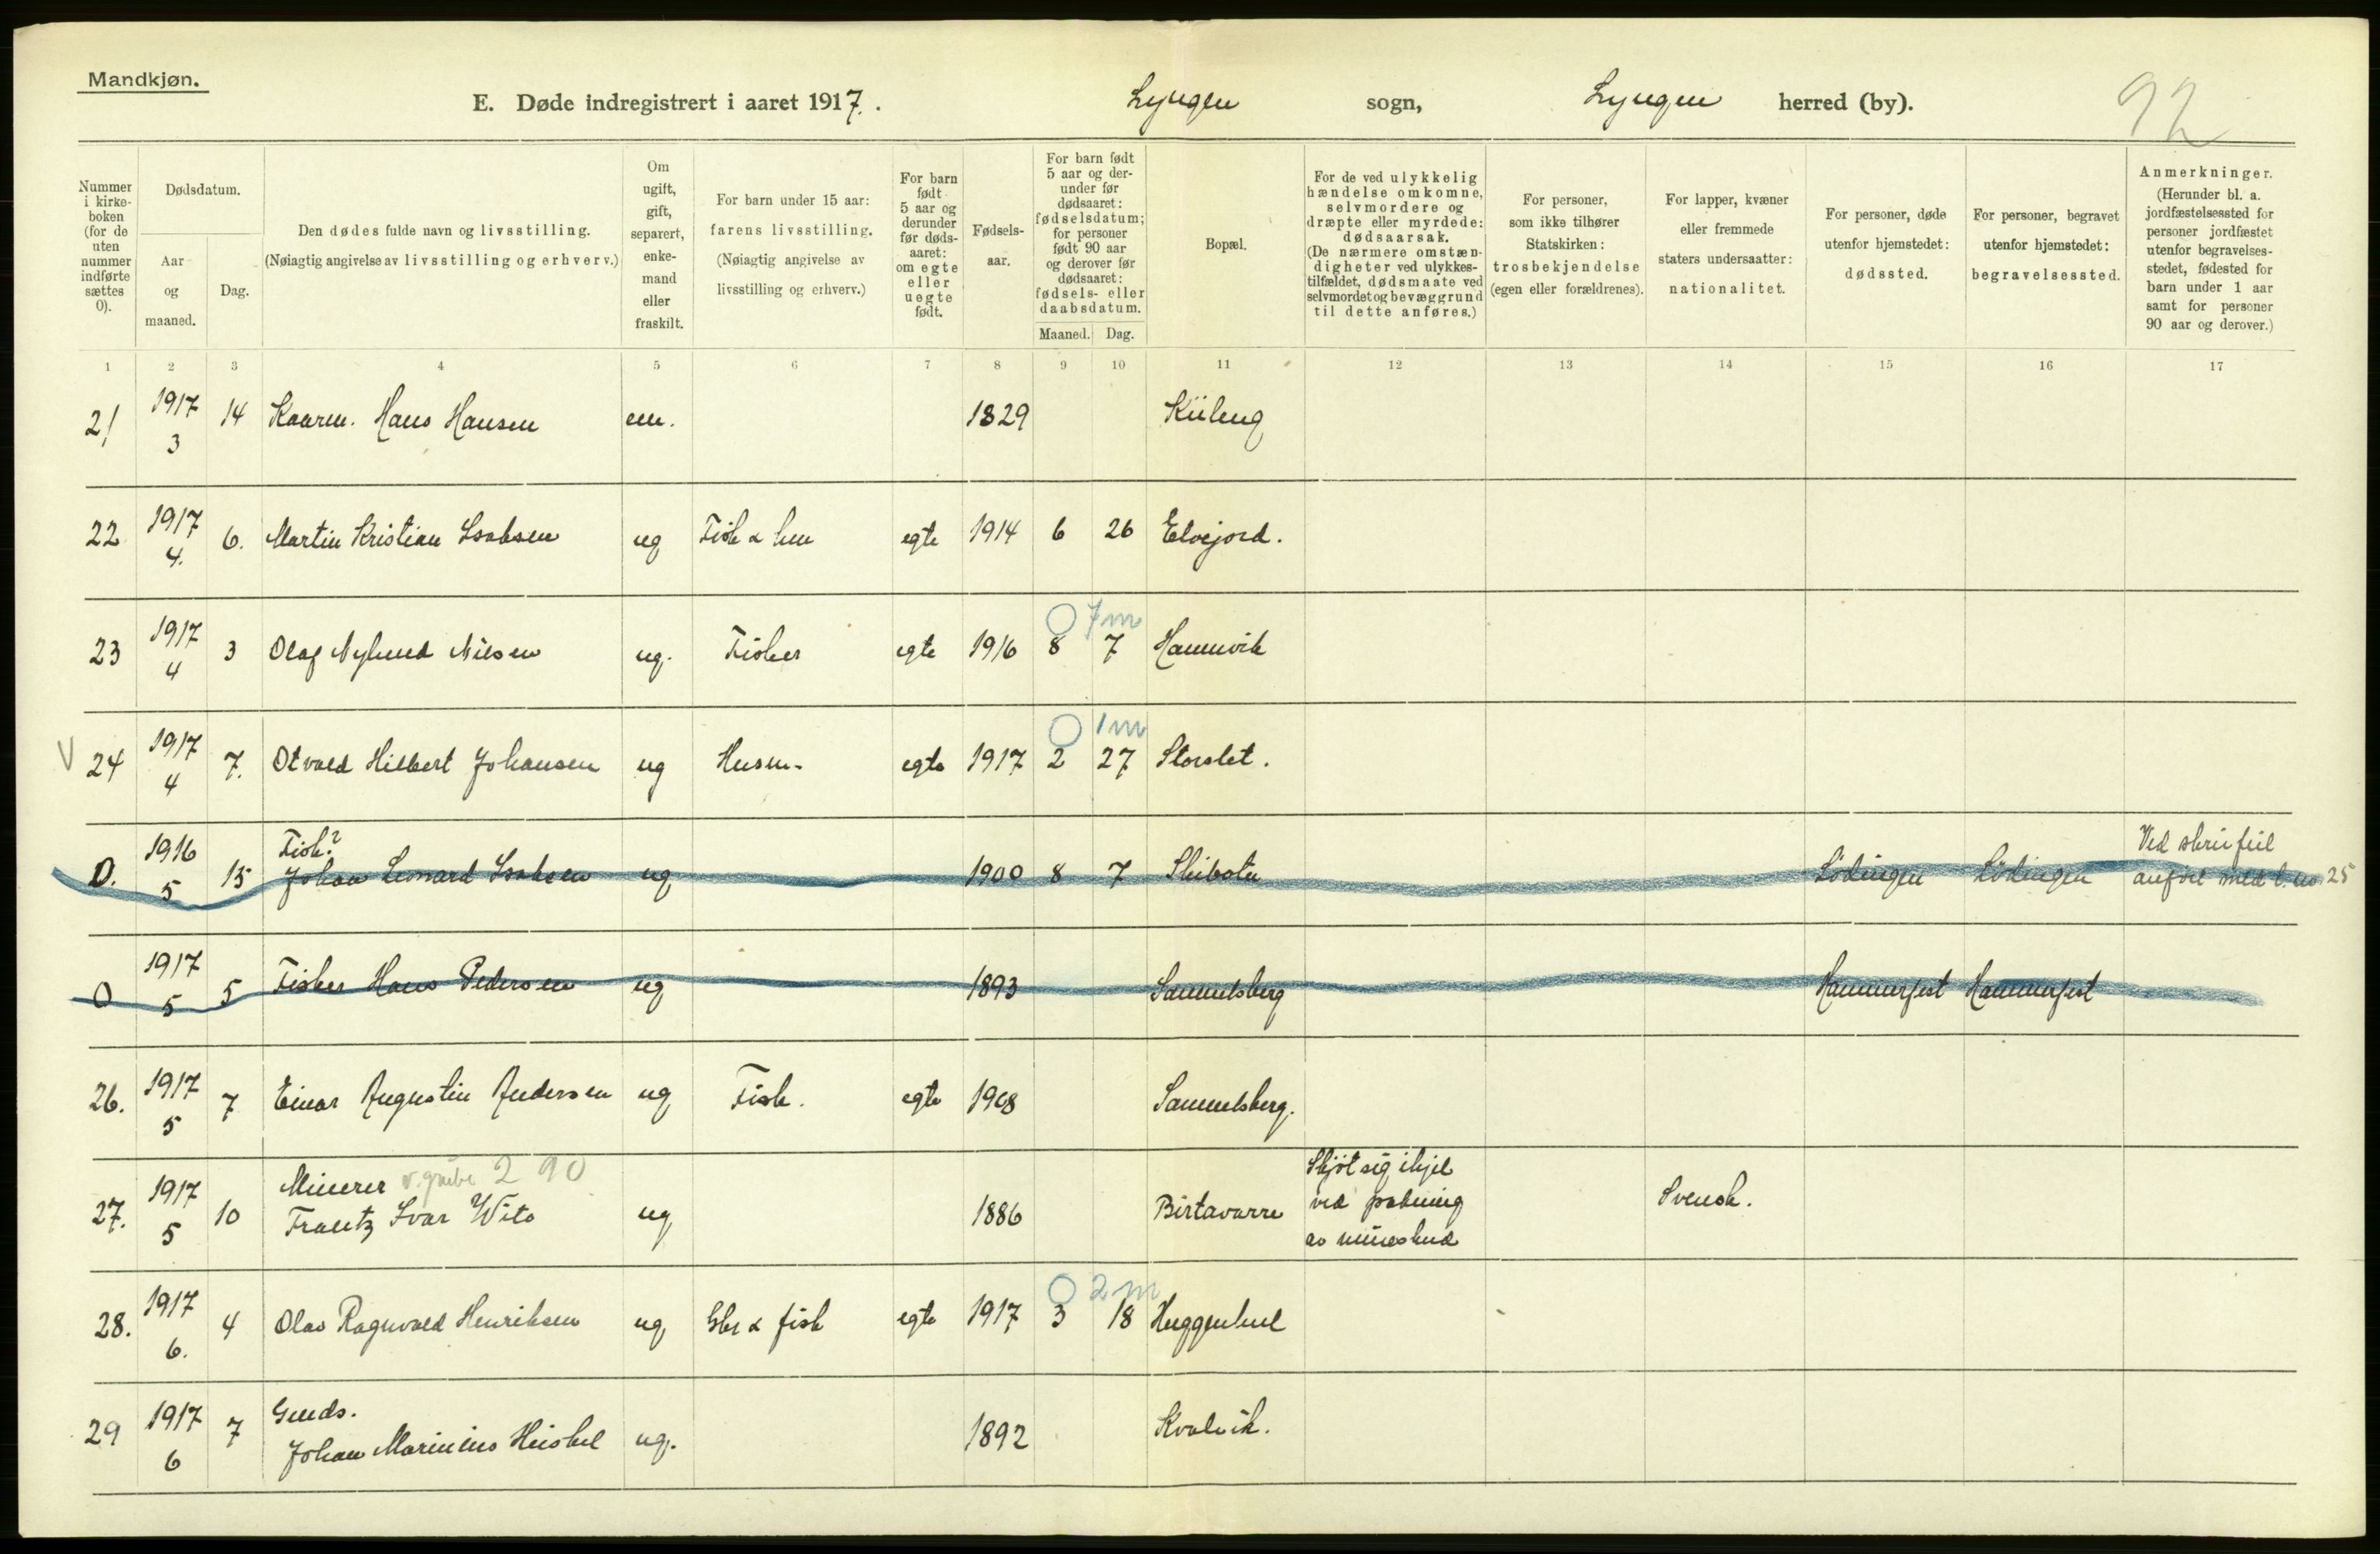 Mandkjøn.
E. Døde indregistrert i aaret 1917. Lyngen sogn, Lyngen herred (by).
92
Nummer i kirkeboken (for de uten nummer indførte sættes 0).
Dødsdatum.
Aar og maaned.
Dag.
Den dødes fulde navn og livsstilling.
(Nøiagtig angivelse av livsstilling og erhverv.)
Om ugift, gift, separert, enkemand eller fraskilt.
For barn under 15 aar: farens livsstilling.
(Nøiagtig angivelse av livsstilling og erhverv.)
For barn født 5 aar og derunder før dødsaaret: om egte eller uegte født.
Fødselsaar.
For barn født 5 aar og derunder før dødsaaret: fødselsdatum; for personer født 90 aar og derover før dødsaaret: fødsels- eller daabsdatum.
Maaned. Dag.
Bopæl.
For de ved ulykkelig hændelse omkomne, selvmordere og dræpte eller myrdede: dødsaarsak.
(De nærmere omstændigheter ved ulykkestilfældet, dødsmaate ved selvmordet og bevæggrund til dette anføres.)
For personer, som ikke tilhører Statskirken: trosbekjendelse (egen eller forældrenes).
For lapper, kvæner eller fremmede staters undersaatter: nationalitet.
For personer, døde utenfor hjemstedet: dødssted.
For personer, begravet utenfor hjemstedet: begravelsessted.
Anmerkninger.
(Herunder bl. a. jordfæstelsessted for personer jordfæstet utenfor begravelsesstedet, fødested for barn under 1 aar samt for personer 90 aar og derover.)
1 2 3 4 5 6 7 8 9 10 11 12 13 14 15 16 17
21 1917 3 14 Kaarm. Hans Hansen em. 1829 Kiileng
22 1917 4. 6. Martin Kristian Isaksen ug Fisk & egte 1914 6 26 Elvejord.
O 7 m
23 1917 4 3 Olaf Nylund Nilsen ug. Fisker egte 1916 8 7 Hamnvik
O 1 m
V 24 1917 4 7. Otvald Hilbert Johansen ug Husm. egte 1917 2 27 Storslet.
0. 1916 5 15 Fisk? Johan Leonard Isaksen ug 1900 8 7 Skibotn Lødingen Lødingen Ved skrivfeil anført med l. no. 25
0 1917 5 5 Fisker Hans Pedersen ug 1893 Samuelsberg Hammerfest Hammerfest
26. 1917 5 7 Einar Augustin Andersen ug Fisk. egte 1908 Samuelsberg.
27. 1917 5 10 Minerer v. grube 290
Frantz Ivar Wito ug 1886 Birtavarre Skjøt sig ihjel ved pakning av mineskud Svensk.
O 2 m
28. 1917 6. 4 Olav Ragnvald Henriksen ug Gbr & fisk egte 1917 3 18
29 1917 6 7 Gmds.
Johan Marinius Heiskel ug. 1892 Kvalvik.